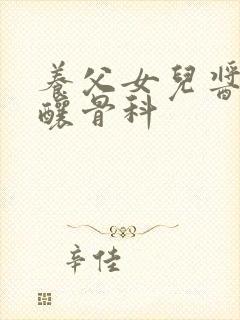 養父女兒醬
釀骨科
辛佳